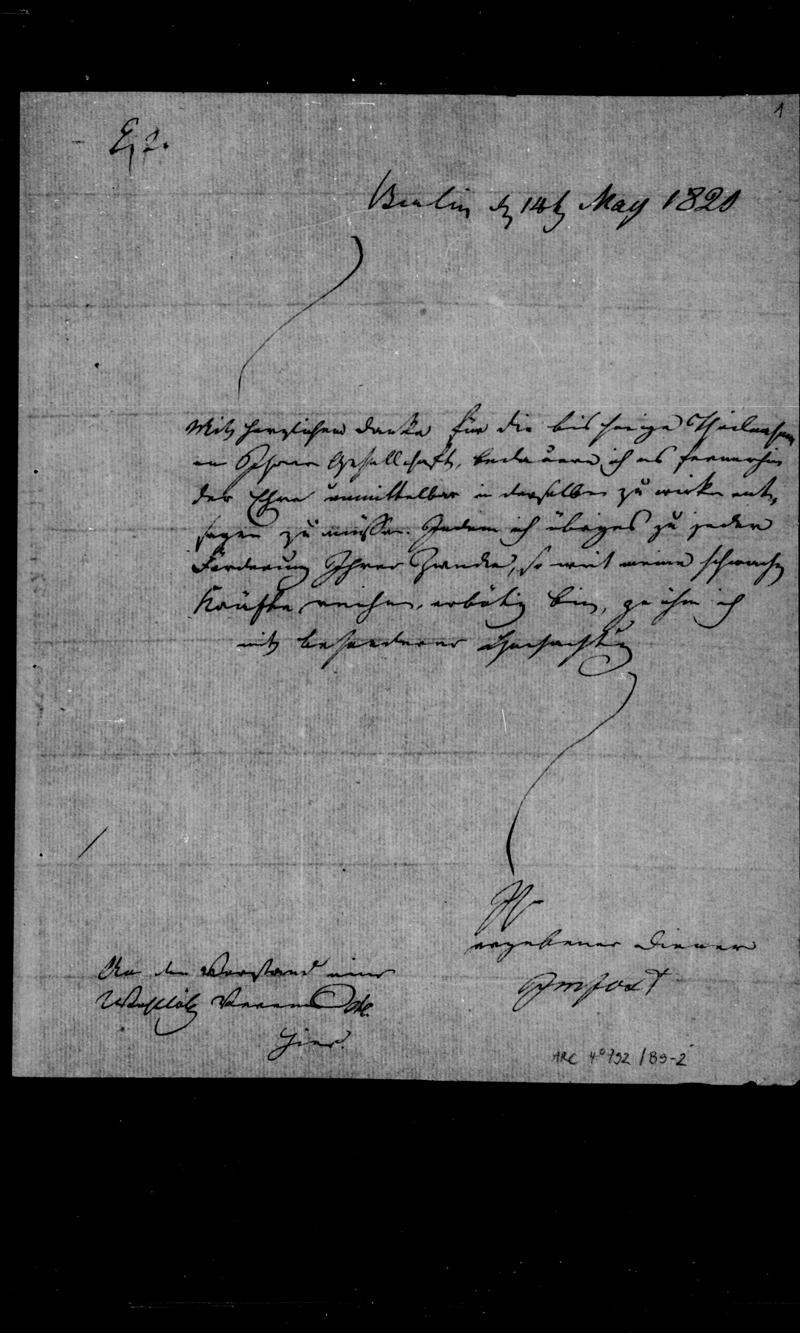 1
Berlin d 14t May 1820
Mit herzlichem Danke für die bisherige Theilnahme
an Ihrer Gesellschaft, bedauere ich es fernerhin
der Ehre unmittelbar in derselben zu wirken ent-
sagen zu müssen. Indem ich übriges zu jeder
Förderung Ihrer Zwecke, so weit meine schwachen
Kräfte reichen, erbötig bin, zeichne ich
mit besonderer Hochachtung
ergebener Diener
An den Vorstand eines
Wohllöb Vereins
Hier.
ARC 4° 792 / B9-2